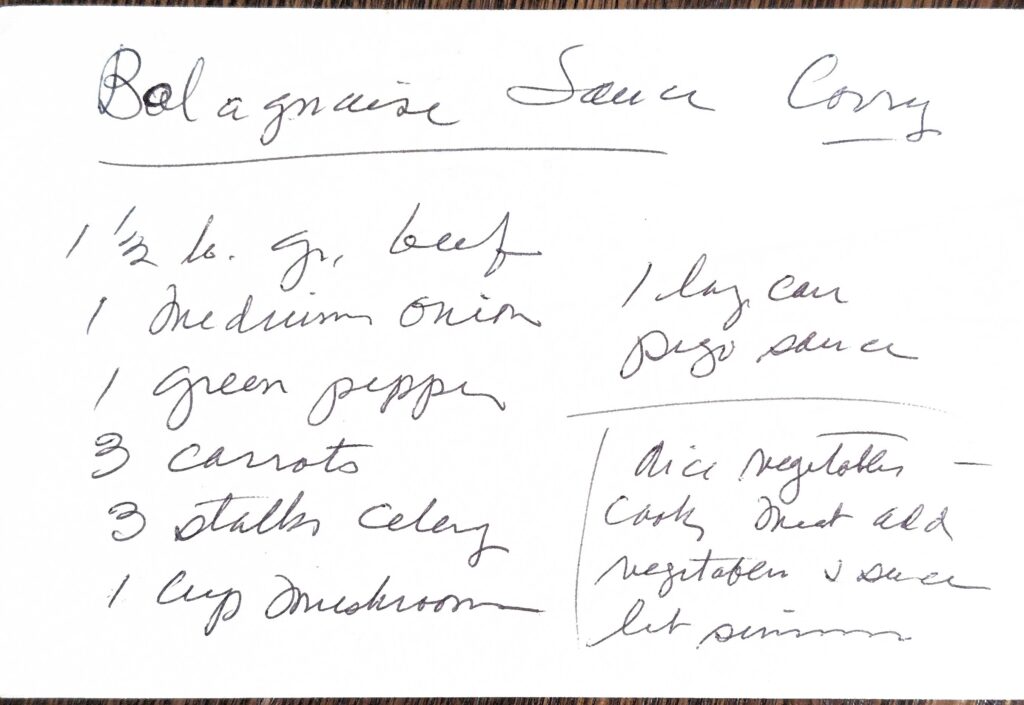 Bolagnaise Sauce Corry
1 1/2 lb. gr. beef
1 medium onion
1 green pepper
3 carrots
3 stalks celery
1 cup mushroom
1 lg. can
prego sauce
dice vegetables –
cook meat add
vegetables & sauce
let simmer